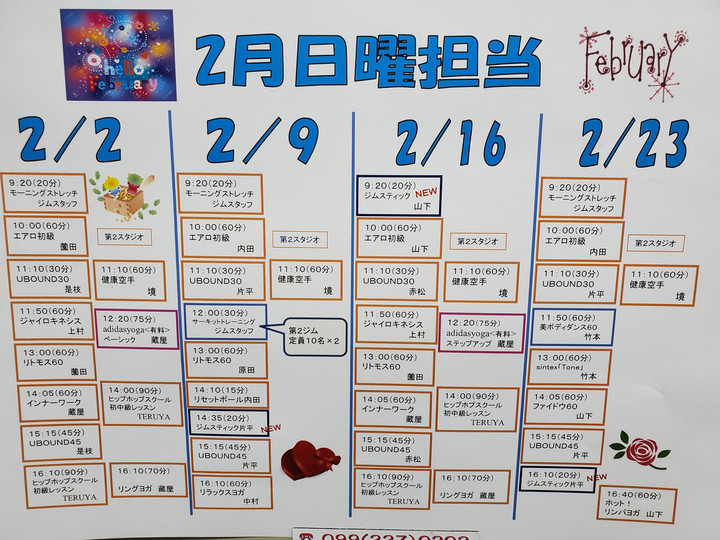 hello
February
2月日曜担当
February
2/2
9:20(20分)
モーニングストレッチ
ジムスタッフ
10:00(60分)
エアロ初級
薗田
第2スタジオ
11:10(30分)
UBOUND30
是枝
11:10(60分)
健康空手
境
11:50(60分)
ジャイロキネシス
上村
12:20(75分)
adidasyoga<有料>
ベーシック 蔵屋
13:00(60分)
リトモス60
薗田
14:05(60分)
インナーワーク
蔵屋
14:00(90分)
ヒップホップスクール
初中級レッスン
TERUYA
15:15(45分)
UBOUND45
是枝
16:10(90分)
ヒップホップスクール
初級レッスン
TERUYA
16:10(70分)
リングヨガ 蔵屋
2/9
9:20(20分)
モーニングストレッチ
ジムスタッフ
10:00(60分)
エアロ初級
内田
第2スタジオ
11:10(30分)
UBOUND30
片平
11:10(60分)
健康空手
境
12:00(30分)
サーキットトレーニング
ジムスタッフ
第2ジム
定員10名×2
13:00(60分)
リトモス60
原田
14:10(15分)
リセットポール内田
14:35(20分)
ジムスティック片平
NEW
15:15(45分)
UBOUND45
片平
16:10(60分)
リラックスヨガ
中村
2/16
9:20(20分)
ジムスティック
山下
NEW
10:00(60分)
エアロ初級
山下
第2スタジオ
11:10(30分)
UBOUND30
赤松
11:10(60分)
健康空手
境
11:50(60分)
ジャイロキネシス
上村
12:20(75分)
adidasyoga<有料>
ステップアップ 蔵屋
13:00(60分)
リトモス60
薗田
14:05(60分)
インナーワーク
蔵屋
14:00(90分)
ヒップホップスクール
初中級レッスン
TERUYA
15:15(45分)
UBOUND45
赤松
16:10(90分)
ヒップホップスクール
初級レッスン
TERUYA
16:10(70分)
リングヨガ 蔵屋
2/23
9:20(20分)
モーニングストレッチ
ジムスタッフ
10:00(60分)
エアロ初級
内田
第2スタジオ
11:10(30分)
UBOUND30
片平
11:10(60分)
健康空手
境
11:50(60分)
美ボディダンス60
竹本
13:00(60分)
sintex「Tone」
竹本
14:05(60分)
ファイドウ60
山下
15:15(45分)
UBOUND45
片平
16:10(20分)
ジムスティック片平
NEW
16:40(60分)
ホット!
リンパヨガ 山下